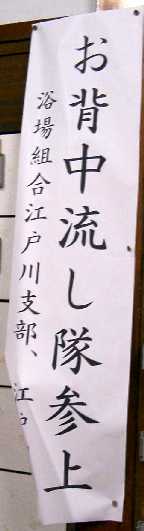 お背中流し隊参上
浴場組合江戸川支部、江